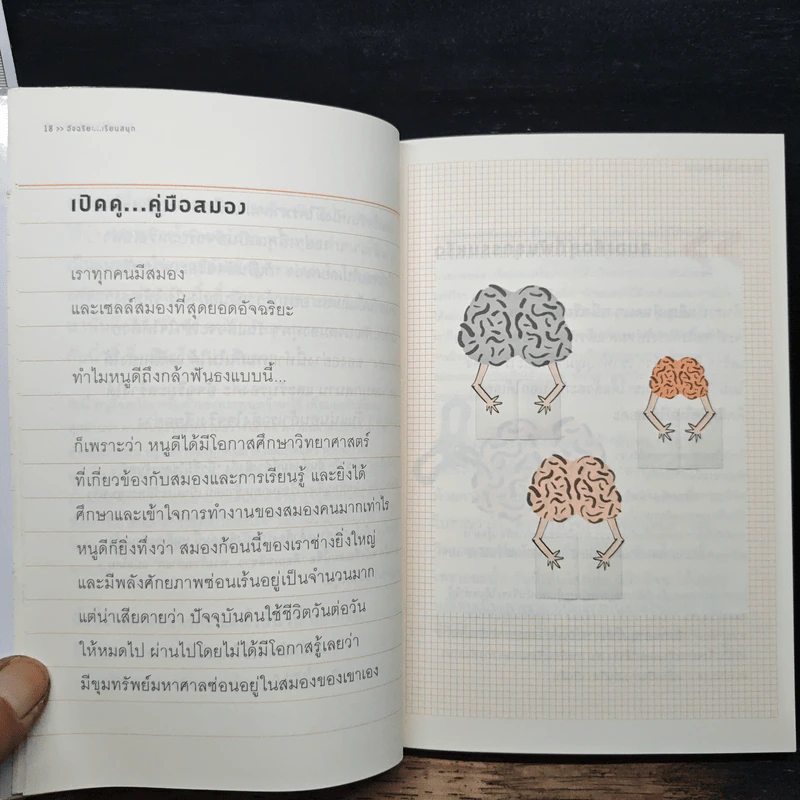 18 >> อัจฉริยะ...เรียนสนุก
เปิดดู...คู่มือสมอง
เราทุกคนมีสมอง
และเซลล์สมองที่สุดยอดอัจฉริยะ
ทำไมหนูดีถึงกล้าฟันธงแบบนี้...
ก็เพราะว่า หนูดีได้มีโอกาสศึกษาวิทยาศาสตร์
ที่เกี่ยวข้องกับสมองและการเรียนรู้ และยิ่งได้
ศึกษาและเข้าใจการทำงานของสมองคนมากเท่าไร
หนูดีก็ยิ่งทึ่งว่า สมองก้อนนี้ของเราช่างยิ่งใหญ่
และมีพลังศักยภาพซ่อนเร้นอยู่เป็นจำนวนมาก
แต่น่าเสียดายว่า ปัจจุบันคนใช้ชีวิตวันต่อวัน
ให้หมดไป ผ่านไปโดยไม่ได้มีโอกาสรู้เลยว่า
มีขุมทรัพย์มหาศาลซ่อนอยู่ในสมองของเขาเอง